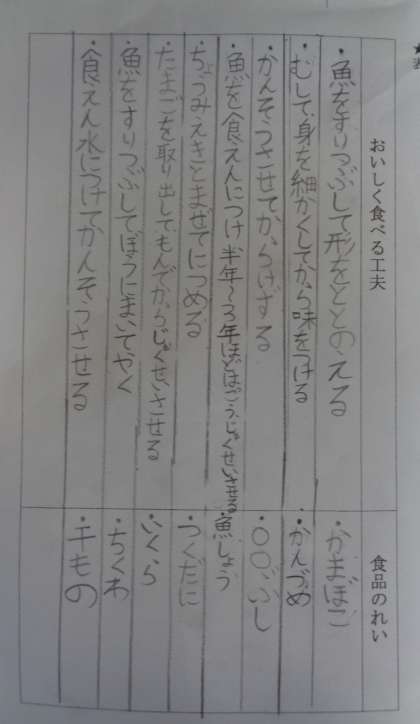 おいしく食べる工夫
食品のれい
・魚をすりつぶして形をととのえる
・かまぼこ
・むして、身を細かくしてから味をつける
・かんづめ
・かんそうさせてからけずる
・〇〇ぶし
・魚を食えんにつけ半年〜3年ほどはっこう、じゅくせいさせる
・魚しょう
・ちょうみえきとまぜてにつめる
・つくだに
・たまごを取り出してもんでからじゅくせいさせる
・いくら
・魚をすりつぶしてぼうにまいてやく
・ちくわ
・食えん水につけてかんそうさせる
・干もの